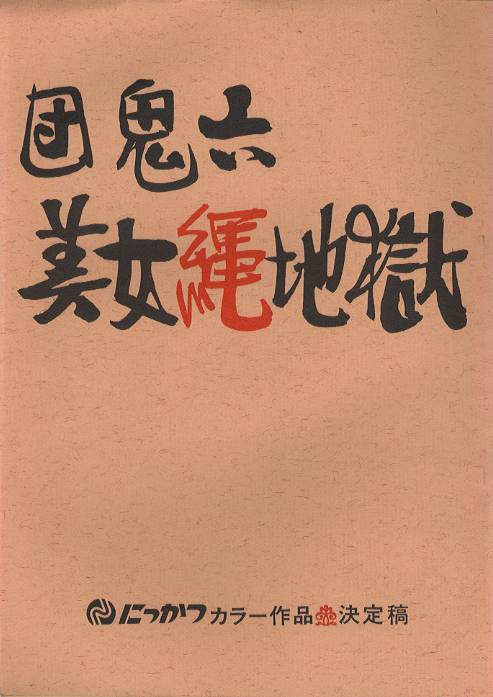 団鬼六
美女縄地獄
にっかつカラー作品 決定稿